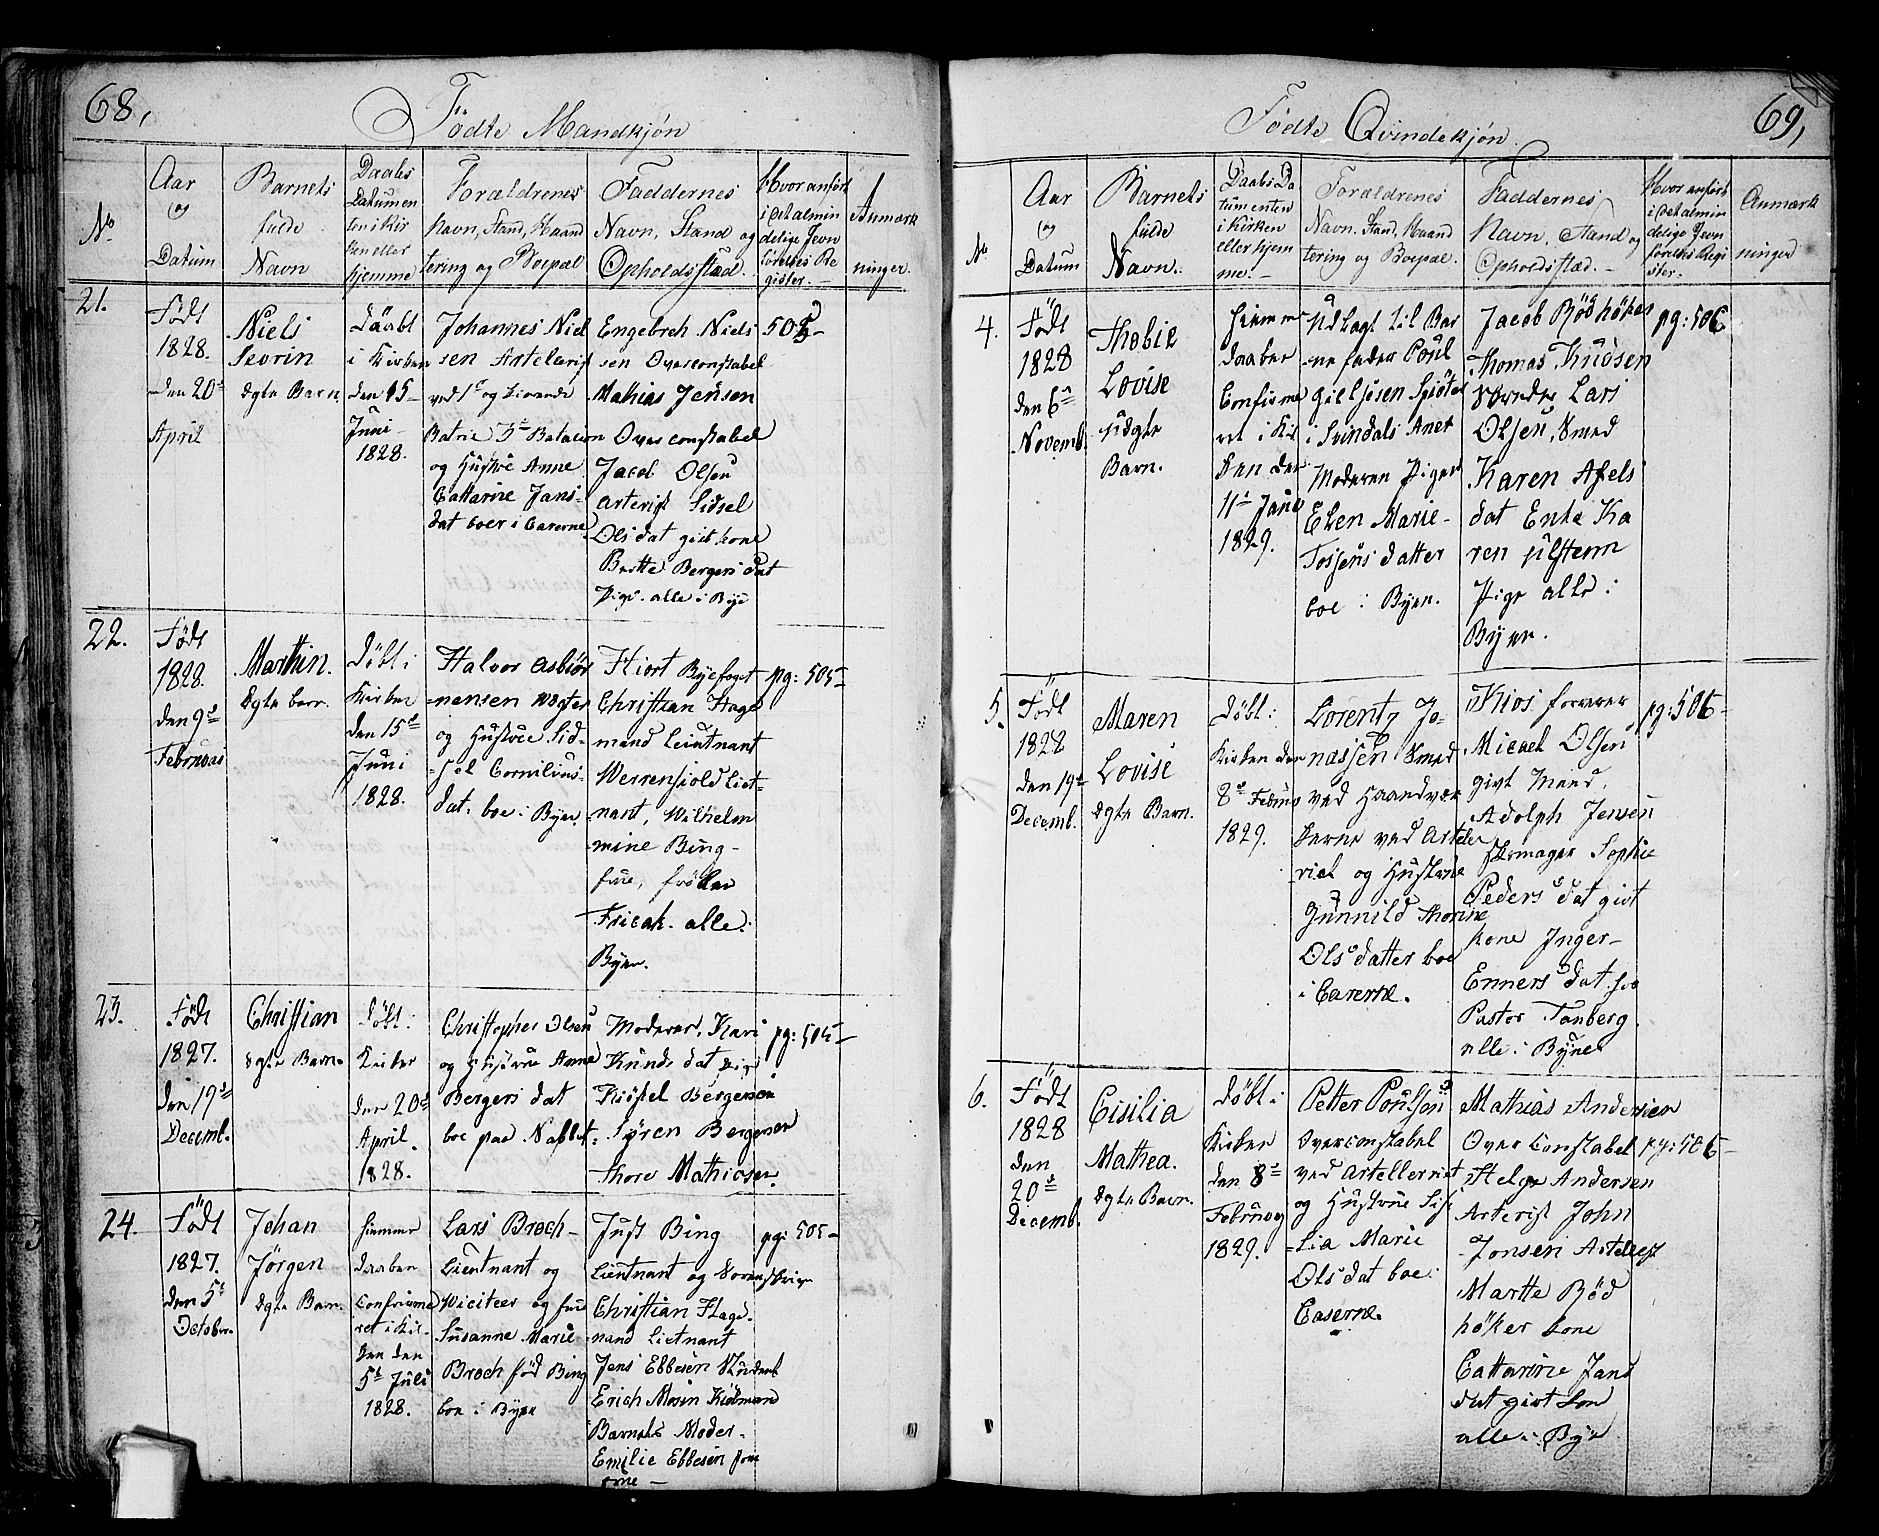 68,
Födte Mandkjön
No
Aar
og
Datum
Barnets
fulde
Navn
Daabs
Datumen
ten i Kir
ken eller
hjemme
Forældrenes
Navn, Stand, Haand
tering og Bopæl
Faddernes
Navn, Stand og
Opholdsstæd.
Hvor anfört
i det almin
delige Jevn
förelses Re
gister.
Anmærk
ninger.
21.
Födt
1828.
den 20de
April
Niels
Sevrin
ægte Barn.
Dåabt
i Kirken
den 15
Juni
1828.
Johannes Niel
sen Artelarist
ved 1ste og
Batrie 3de Batalion
og Hustrue Anne
Cattarine Jans-
dat boer i Caserne
Engebreh Niels
sen Overconstabel
Mathias Jensen
Overconstabel
Jacob Olsen
Arterist Sidsel
Olsdat givt kone
Berthe Bergers dat
Pige. alle i Bye
505-
22.
Födt
1828.
den 9de
Februari
Marthin.
Ægte barn.
Döbt i
Kirken
den 15de
Juni
1828.
Halvor Asbiör
nensen Vægter
og Hustrue Sid-
sel Cornilius-
dat. boe i Byen
Hiort Byefoget
Christian Hage
mand Leiutnant
Werrenskiold Liet-
nant, Wilhelm
mine Bing-
frue, fröken
alle i
Byen.
pg: 505-
23.
Födt
1827.
den 19de
Decemb.
Christian
ægte Barn.
Döbt i
Kirken
den 20de
April.
1828.
Christopher Olsen
og Hustrue Anne
Bergers dat
boe paa Nabbet.
Moderer. Kari
Knuds dat Pig
Kiöstel Bergersen
Sören Bergersen
Thore Mathiesen.
pg: 505-
24.
Födt
1827.
den 5te
October.
Johan
Jörgen
Ægte Barn.
hiemme
daaben
Confirme
ret i Kir-
ken den
5te Juli
1828.
Lars Broch-
Lieutnant og
Viciteer og frue
Susanne Marie
Broch föd Bing
boe i Byen
Just Bing
Lieutnant og Sorenskriver
Christian Hage-
mand Lietnant
Jens Ebbesen Student
Erich Mosin Kielmand
Barnets Moder.
Emilie Ebbesen Jom
frue -
pg: 505-
69,
Födte Qvindekjön
No
Aar
og
Datum
Barnets
fulde
Navn.
Daabs Da
tumenten
i Kirken
eller hjem
me.
Forældrenes
Navn. Stand, Haand
tering og Bopæl.
Faddernes
Navn, Stand og
Opholdsstæd.-
Hvor anfört
i det almin
delige Jevn
förelses Regi
ster.-
Anmærk
ninger
4.
Födt
1828
den 6te
Novemb.
Thobie
Lovise
uægte
Barn.
hiemme
daaben
Confirme
ret i Kir
ken den
11te Janu
1829.
Udlagt til Bar
ne fader Poul
Giltsesen Spöter
i Svindals Anet
Moderen Piger
Elen Marie-
Tossens datter
boe i Byen.
Jacob Rödhöker
Thomas Knudsen
Lars
Olsen, Smed
Karen Axels
dat Enke Ka
ren Ulstenn
Pige alle i
Byen.
pg: 506
5.
Födt
1828
den 19de
Decemb.
Maren
Lovise
Ægte Barn.
Döbt i
Kirken den
8de Februa
1829.
Lorentz Jo-
nassen Smed
ved Haandvær
kerne ved Artele
riet og Hustrue
Gunnild Thorine
Olsdatter boe
i Caserne.
Kios forerer
Micael Olsen
givt Mand.
Adolph Jensen
Skomager Sophie
Peders dat givt
kone Inger-
Enners dat hos
Pastor Tanberg.
alle i Byen
pg: 506-
6.
Födt
1828
den
20de
Decemb.
Cisilia
Mathea.
Ægte Barn.
döbt i
Kirken
den 8de
Februay
1829.
Petter Poulsen
Overconstabel
ved Artelleriet
og Hustrue Sisi
lia Marie
Olsdat boe i
Caserne.
Mathias Andersen
Over Constabel
Helge Andersen
Arterist John
Jonsen Artelerist
Marthe Röd
höker kone
Cattarine Jans
dat givt kone
alle i Bye
pg: 506-